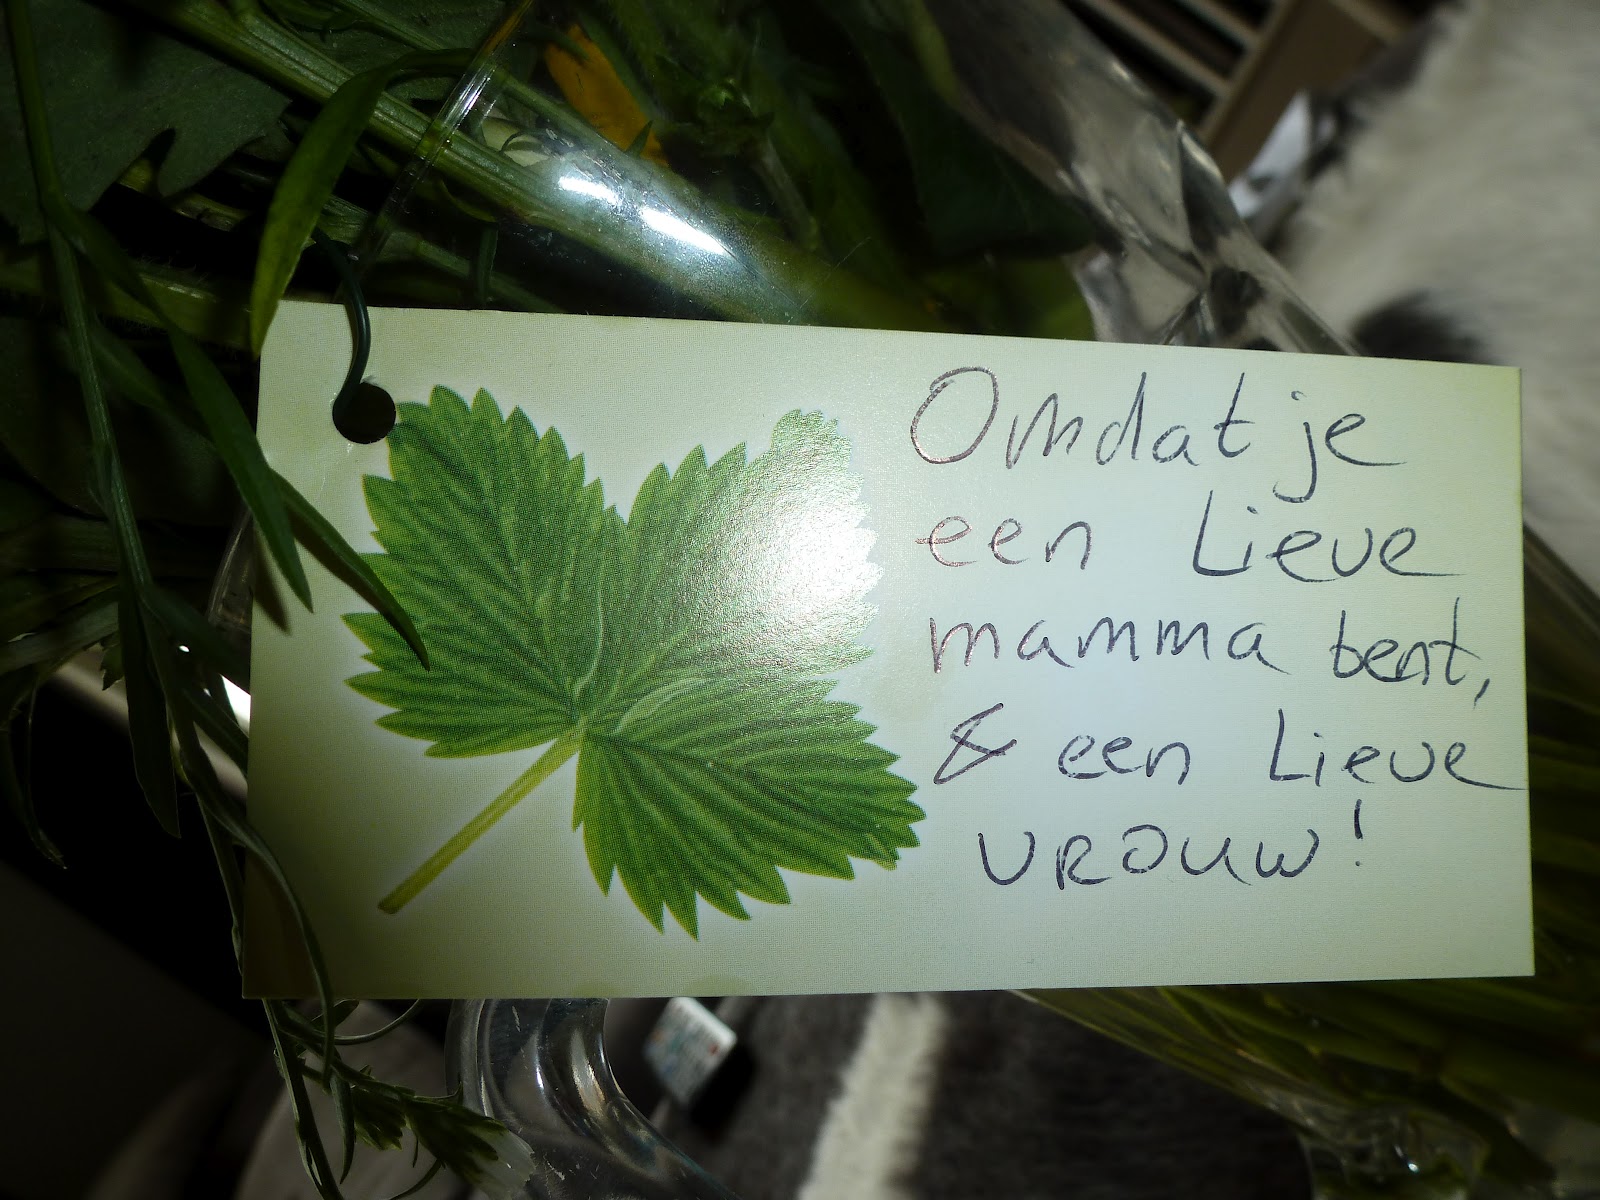 Omdat je
een Lieve
mamma bent,
& een Lieve
vrouw!